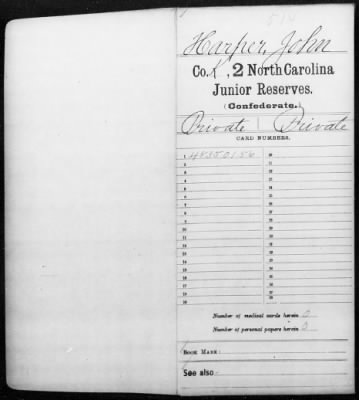 514
Harper, John
Co. K, 2 North Carolina
Junior Reserves.
(Confederate.)
Private | Private
CARD NUMBERS.
1 48350156 20
2 21
3 22
4 23
5 24
6 25
7 26
8 27
9 28
10 29
11 30
12 31
13 32
14 33
15 34
16 35
17 36
18 37
19 38
Number of medical cards herein 0
Number of personal papers herein 0
BOOK MARK:
See also